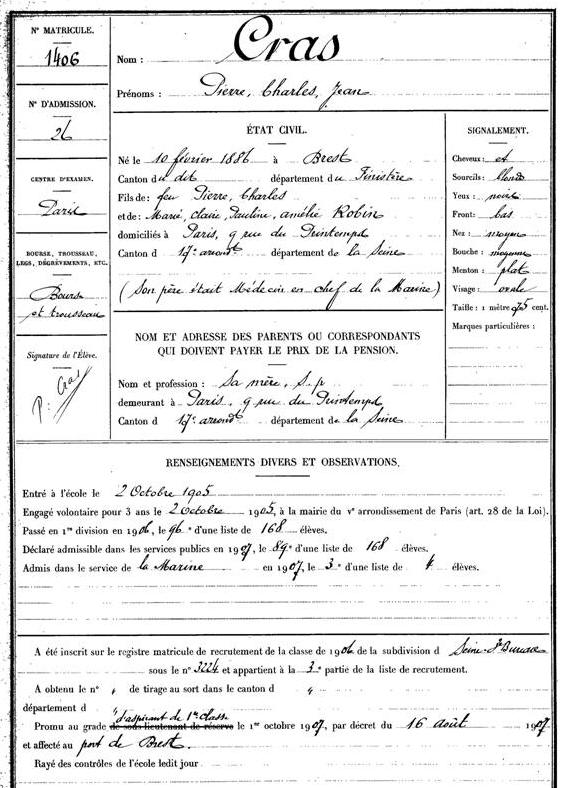 N° MATRICULE.
1406
N° D'ADMISSION.
26
CENTRE D'EXAMEN.
Paris
BOURSE, TROUSSEAU,
LEGS, DÉGRÈVEMENTS, ETC.
Bourse
et trousseau
Signature de l'Élève.
P. Cras
Nom : Cras
Prénoms : Pierre, Charles, Jean
ÉTAT CIVIL.
Né le 10 février 1886 à Brest
Canton du dit département du Finistère
Fils de : feu Pierre, Charles
et de : Marie, Claire, Pauline, Amélie Robin
domiciliés à Paris, 9 rue du Printemps
Canton d 17e arrondt département de la Seine
(Son père était Médecin en chef de la Marine)
NOM ET ADRESSE DES PARENTS OU CORRESPONDANTS
QUI DOIVENT PAYER LE PRIX DE LA PENSION.
Nom et profession : Sa mère, S.p
demeurant à Paris, 9 rue du Printemps
Canton d 17e arrondt département de la Seine
SIGNALEMENT.
Cheveux : et
Sourcils : blonds
Yeux : noirs
Front : bas
Nez : moyen
Bouche : moyenne
Menton : plat
Visage : ovale
Taille : 1 mètre 75 cent.
Marques particulières :
RENSEIGNEMENTS DIVERS ET OBSERVATIONS.
Entré à l'école le 2 Octobre 1905
Engagé volontaire pour 3 ans le 2 Octobre 1905, à la mairie du Ve arrondissement de Paris (art. 28 de la Loi).
Passé en 1re division en 1906, le 96e d'une liste de 168 élèves.
Déclaré admissible dans les services publics en 1907, le 89e d'une liste de 168 élèves.
Admis dans le service de la Marine en 1907, le 3e d'une liste de 4 élèves.
A été inscrit sur le registre matricule de recrutement de la classe de 1906 de la subdivision d Seine, Bureau
sous le n° 3224 et appartient à la 3e partie de la liste de recrutement.
A obtenu le n° " de tirage au sort dans le canton d "
département d "
d'aspirant de 1re classe
Promu au grade de sous-lieutenant de réserve le 1er octobre 1907, par décret du 16 août 1907
et affecté au port de Brest.
Rayé des contrôles de l'école ledit jour